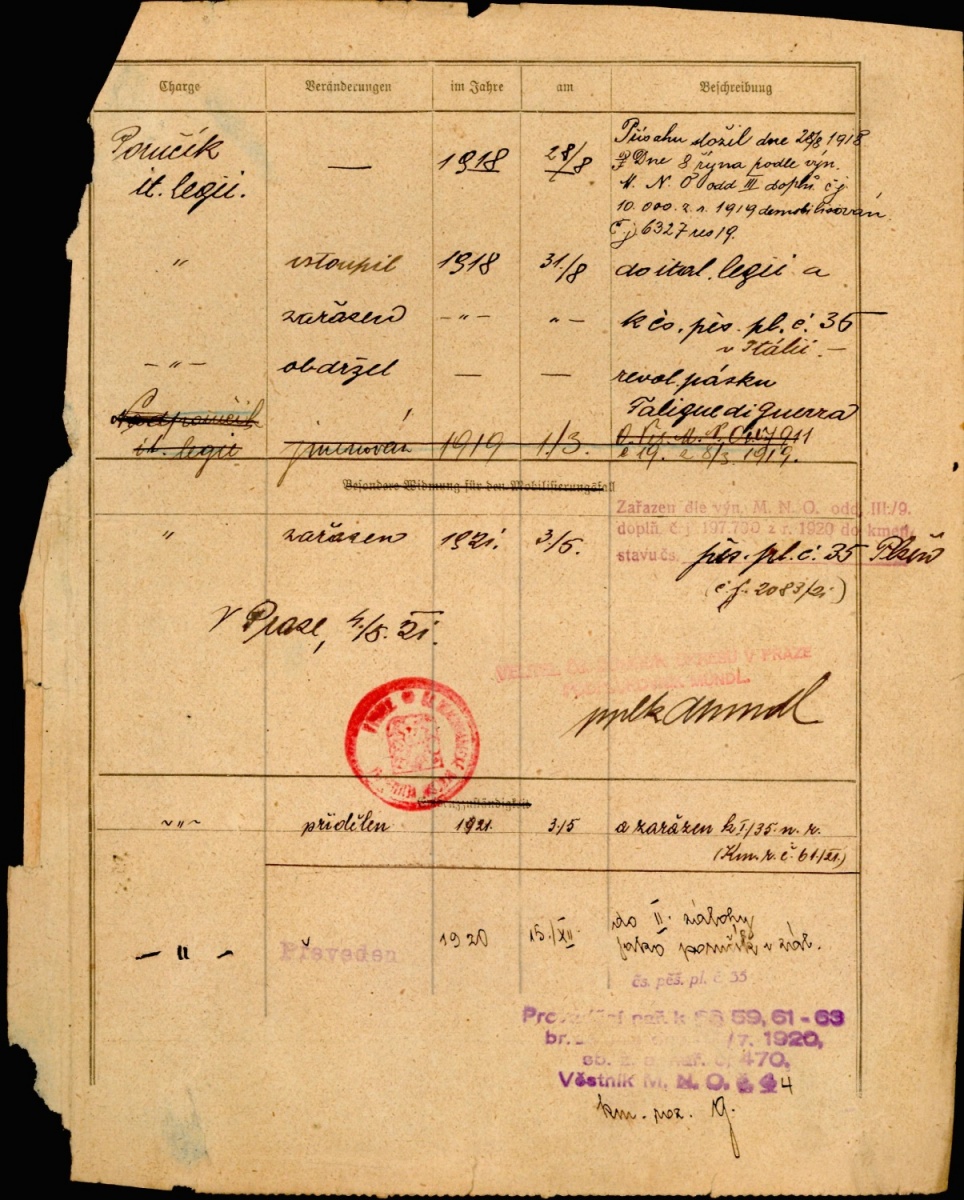 Charge Veränderungen im Jahre am Beschreibung
Poručík — 1918 28/8 Přísahu složil dne 28/8 1918
it. legií. Dne 8 října podle výn.
M. N. O odd III doplň. čj
10.000 z r. 1919 demobilisován.
Čj 6327 res 19.
" vstoupil 1918 31./8 do ital. legií a
zařazen —"— "— k čs. pěs. pl. č. 35
v Itálii.—
—"— obdržel — — revol. pásku
Nadporučík Fatigue di Guerra
it. legií jmenován 1919 1./3. M. N. O.
č 19. z 8/3. 1919.
Besondere Widmung für den Mobilisierungsfall
Zařazen dle výn. M. N. O. odd. III./9.
" zařazen 1921. 3./5. doplň. č. j. 197.730 z r. 1920 do kmen.
stavu čs. pěs. pl. č. 35 Plzeň
(č. j. 2083/21)
V Praze, 4./5. 21.
V PRAZE
MÜNDL.
plk Mündl
~"~ přidělen 1921. 3/5 a zařazen k I/35 n. r.
(Km. r. č. 61/21)
— " — Převeden 1920 15./XII. do II. zálohy
jako poručík v zál.
čs. pěš. pl. č 35
Prováděcí nař. k §§ 59, 61-63
br. 1920,
sb. z. a nař. č. 470,
Věstník M. N. O. č. 4
km. roz. 19.